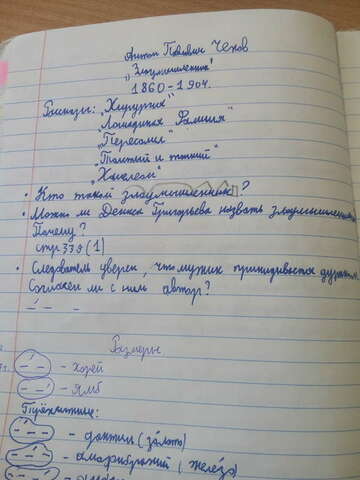 Антон Павлович Чехов
„Злоумышленник"
1860-1904.
Рассказы: „Хирургия"
„Лошадиная Фамилия"
„Пересолил"
„Толстый и тонкий"
„Хамелеон"
• Кто такой злоумышленник?
• Можно ли Дениса Григорьева назвать злоумышленником
Почему?
стр 339 (1)
• Следователь уверен, что мужик прикидывается дураком.
Согласен ли с ним автор?
Размеры
- хорей
- ямб
Трёхсложные:
- дактиль (зо́лото)
- амфибрахий (желе́зо)